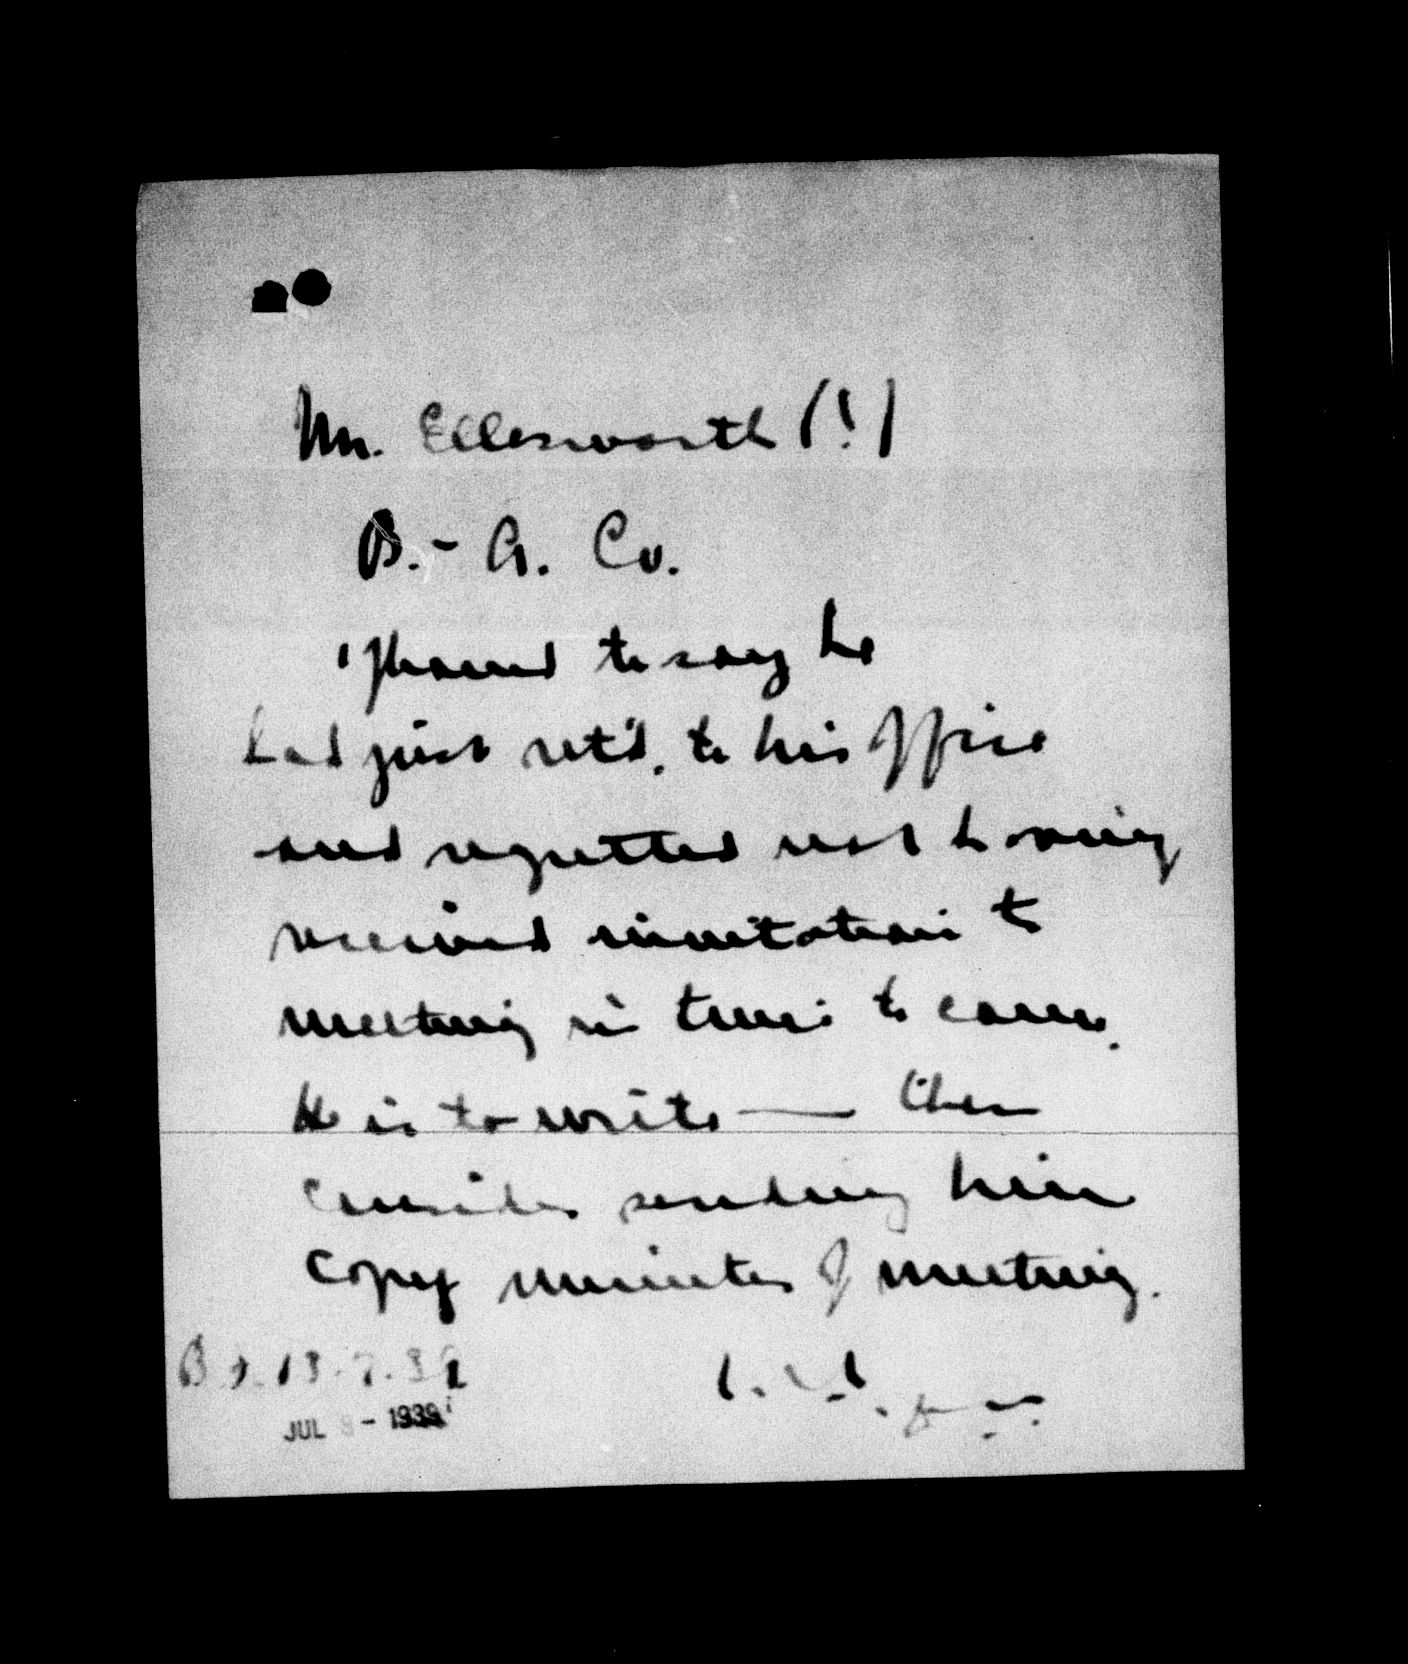 Mr. Ellesworth (!)
B.- A. Co.
'phoned to say he
had just ret'd. to his office
and regretted not having
received invitation to
meeting in time to come.
He is to write — then
consider sending him
copy minutes of meeting.
13.7.39
JUL - 1939